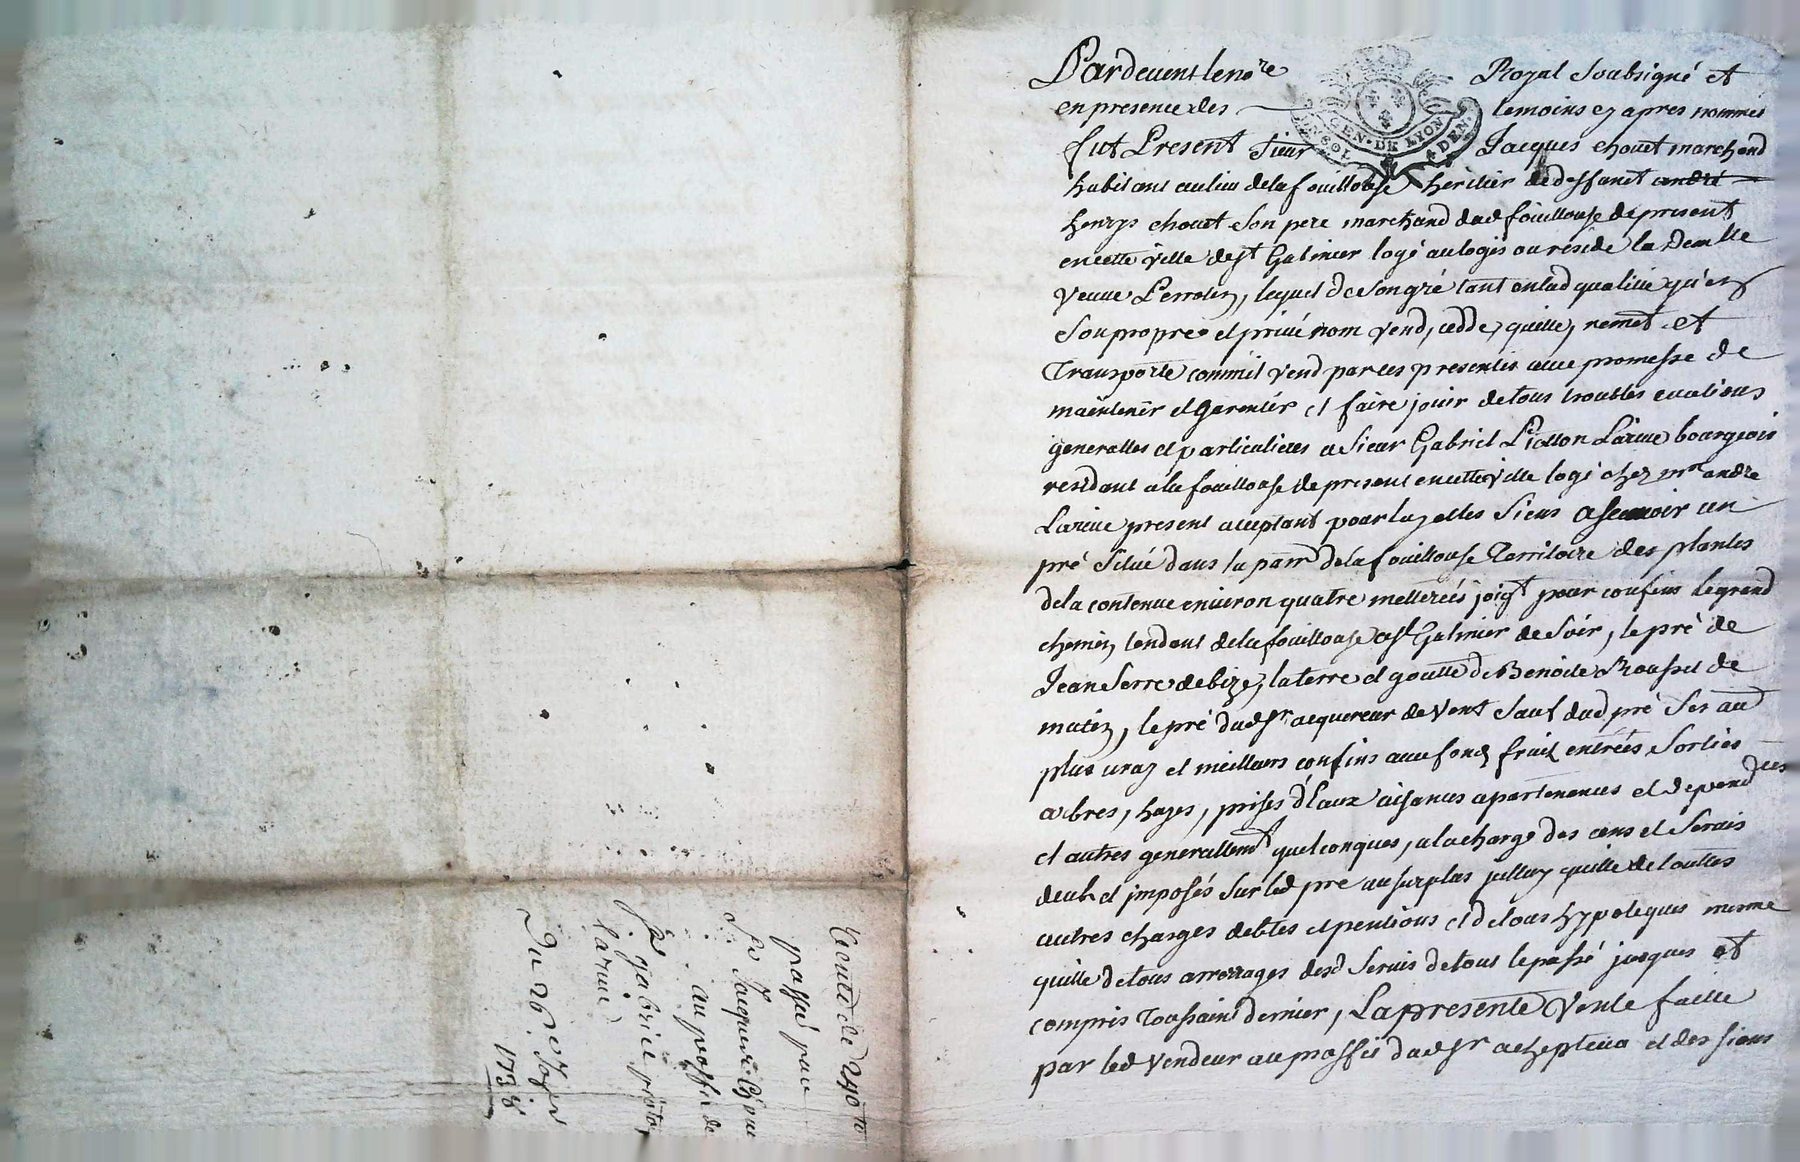 Pardevent le no.re Royal Soubsigné et
en presence des temoins cy apres nommés
fut Present Sieur Jacques chouet marchand
habitant au lieu de la fouillouse heritier de deffunct andré
henrys chouet Son pere marchand dud fouillouse de present
en cette ville de st Galmier logé au logis ou réside la Demlle
Veuve Perrotin, lequel de Son gré tant en lad qualitté qu'en
Son propre et privé nom vend, cedde, quitte, remet et
Transporte comm'il vend par ces presentes avec promesse de
maintenir et garentir et faire jouir de tous troubles evictions
generalles et particulieres a Sieur Gabriel Larüe bourgeois
residant a la fouillouse de present en cette ville logé chez mr andré
Larüe present aceptant pour luy et les Siens a Scavoir un
pré Situé dans la parr de la fouillouse Territoire des plantes
de la contenue environ quatre metterées joigt pour confins le grand
chemin tendant de la fouillouse a st Galmier de Soir, le pré de
Jean Serre de bize, la terre et goutte de Benoite Roussel de
matin, le pré dud Sr acquereur de vent Sauf dud pré Ses aud
plus vray et meilleurs confins avec fond, fruit entrées, Sorties
arbres, hayes, prises d'Eaux aisances apartenances et depend.ces
et autres generallemt quelconques, a la charge des cens et Servis
deubs et imposés Sur led pré au Surplus jcelluy quitte de touttes
autres charges debtes et pentions et de tous hypoteques mesme
quitte de tous arrerages desd Servis de tout le passé jusques et
compris Toussaint dernier, La presente Vente faitte
par led vendeur au proffit dud Sr achepteur et des Siens
GEN. DE LYON
4 DEN.
Vente de 240 tt
passé par
Sr Jacques Chouet
au proffit de
Sr gabriel
Larüe
Du 26e
1738